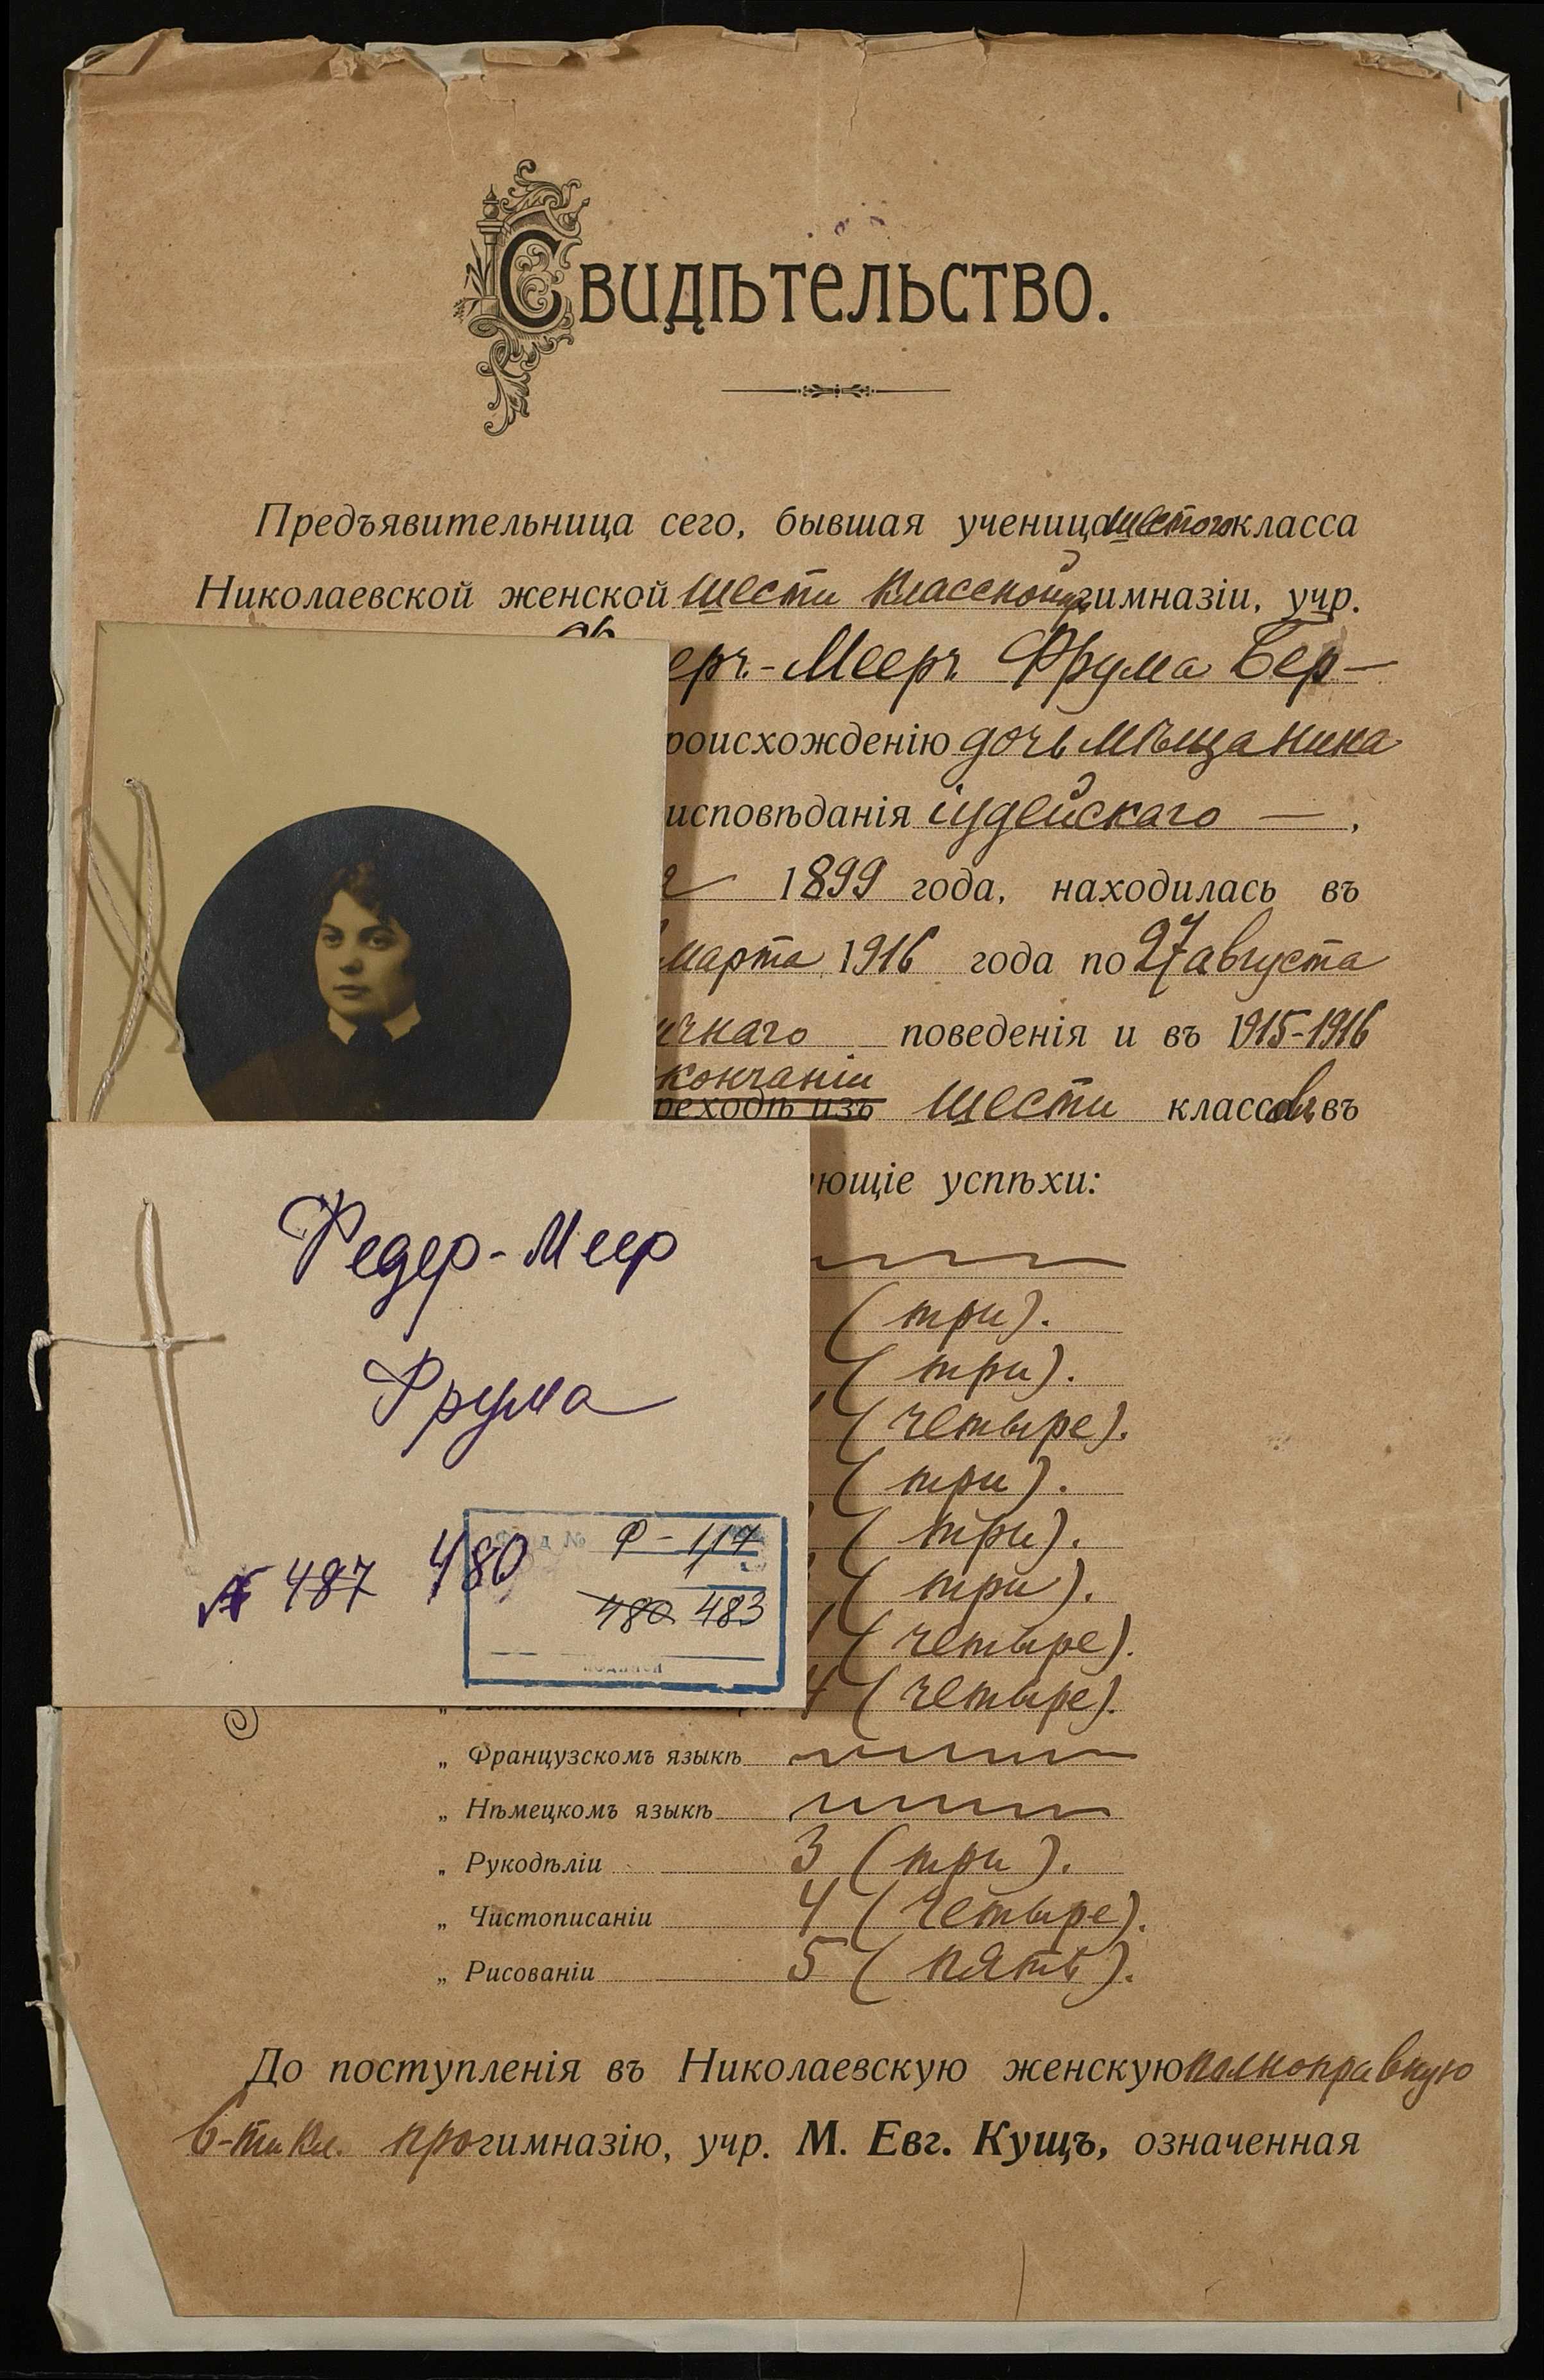 Свидѣтельство.
Предъявительница сего, бывшая ученица шестого класса
Николаевской женской шести классной гимназіи, учр.
еръ-Мееръ Фрума Бер—
роисхожденію дочь мѣщанина
исповѣданія іудейскаго —,
1899 года, находилась въ
марта 1916 года по 27 августа
ичнаго поведенія и въ 1915-1916
кончаніи
реходѣ изъ шести классовъ въ
ющіе успѣхи:
Федер-Меер
Фрума
№ 487 480
№ Ф-117
480 483
(три).
(три).
(четыре).
(три).
(три).
(три).
(четыре).
4 (четыре).
„ Французскомъ языкѣ
„ Нѣмецкомъ языкѣ
„ Рукодѣліи 3 (три).
„ Чистописаніи 4 (четыре).
„ Рисованіи 5 (пять).
До поступленія въ Николаевскую женскую полноправную
6-ти кл. прогимназію, учр. М. Евг. Кущъ, означенная